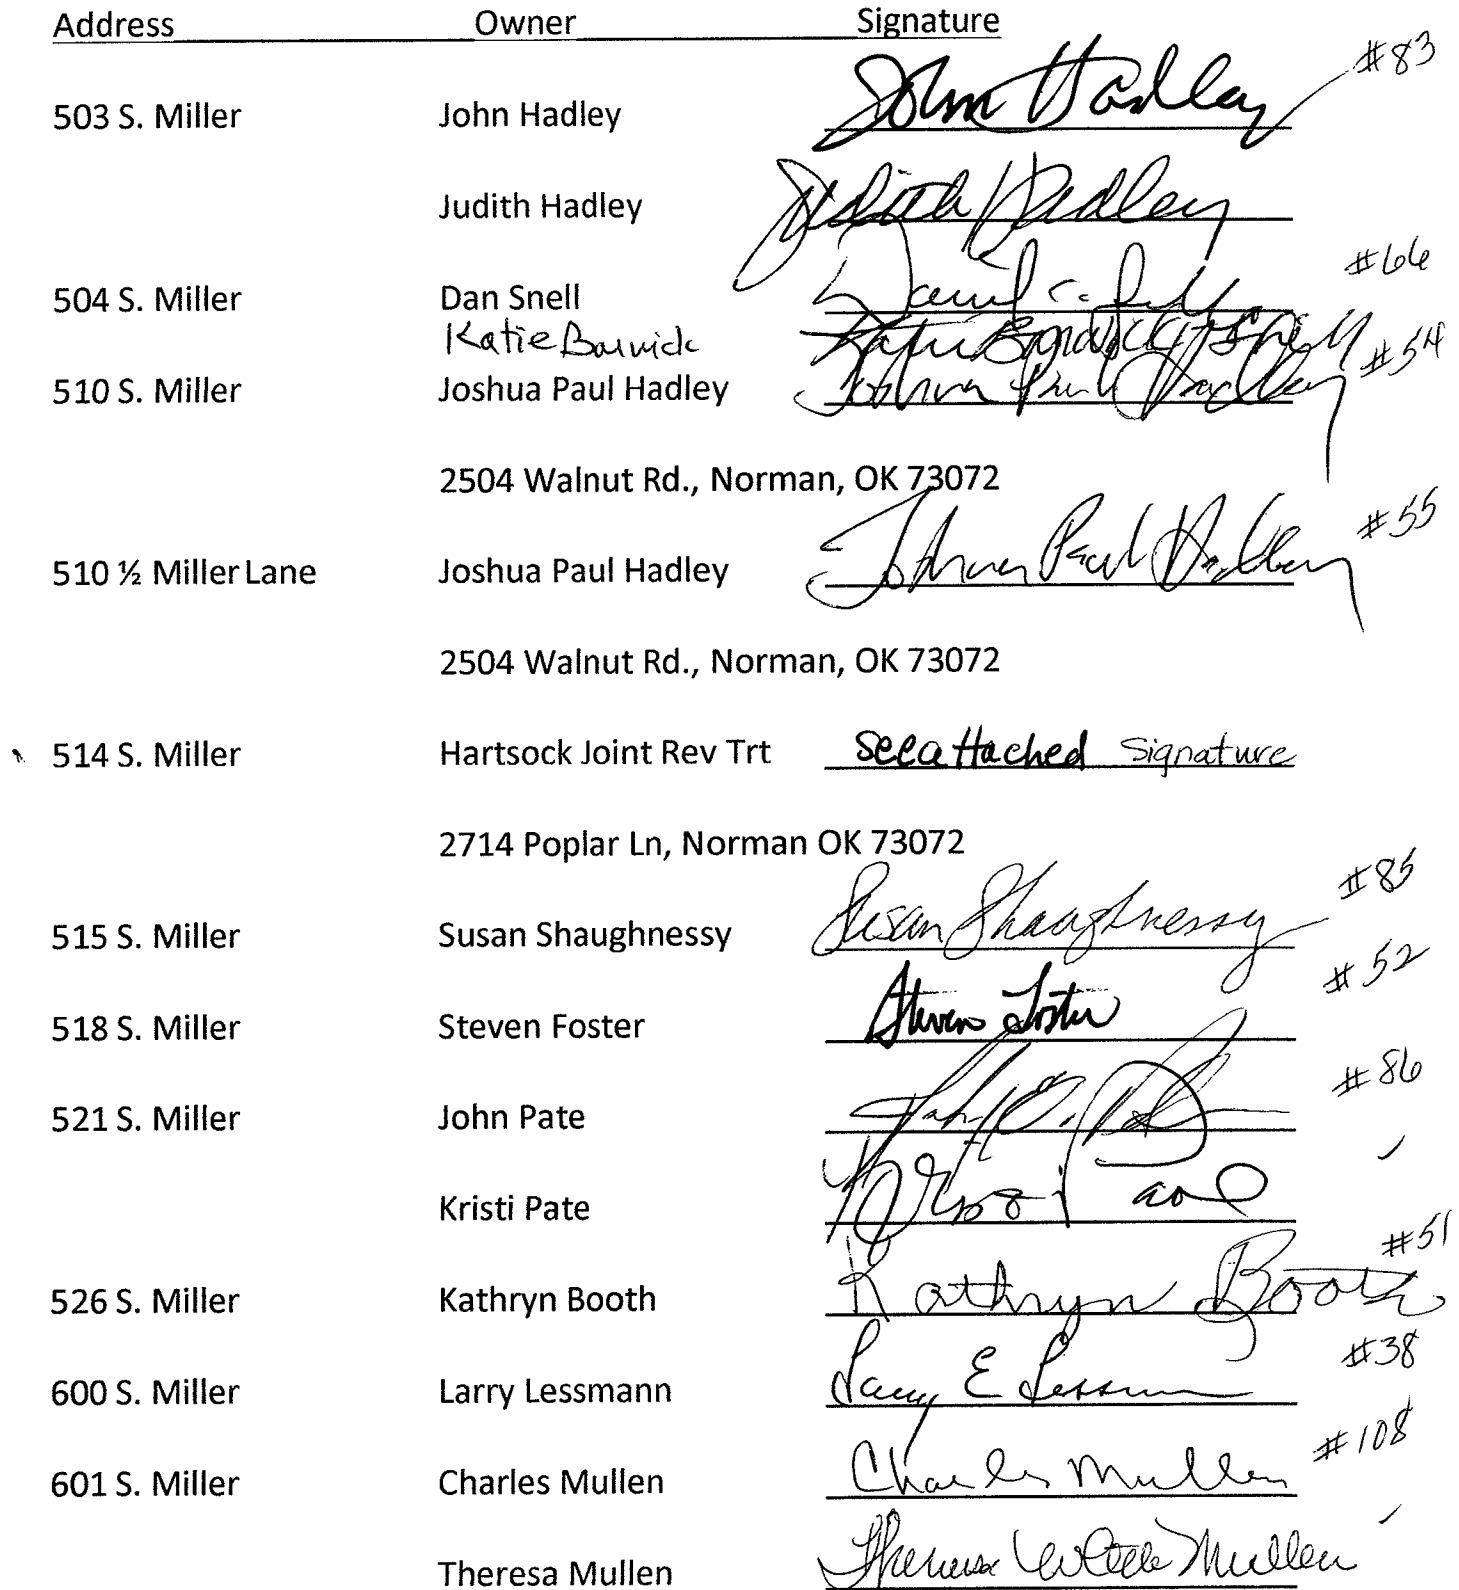 Address Owner Signature
#83
503 S. Miller John Hadley John Hadley
Judith Hadley Judith Hadley
#66
504 S. Miller Dan Snell
Katie Barwick Katie Barwick Snell
#54
510 S. Miller Joshua Paul Hadley Joshua Paul Hadley
2504 Walnut Rd., Norman, OK 73072
#55
510 ½ Miller Lane Joshua Paul Hadley Joshua Paul Hadley
2504 Walnut Rd., Norman, OK 73072
514 S. Miller Hartsock Joint Rev Trt see attached Signature
2714 Poplar Ln, Norman OK 73072
#85
515 S. Miller Susan Shaughnessy Susan Shaughnessy
#52
518 S. Miller Steven Foster Steven Foster
#86
521 S. Miller John Pate
Kristi Pate
#51
526 S. Miller Kathryn Booth Kathryn Booth
#38
600 S. Miller Larry Lessmann Larry E Lessmann
#108
601 S. Miller Charles Mullen Charles Mullen
Theresa Mullen Theresa Mullen